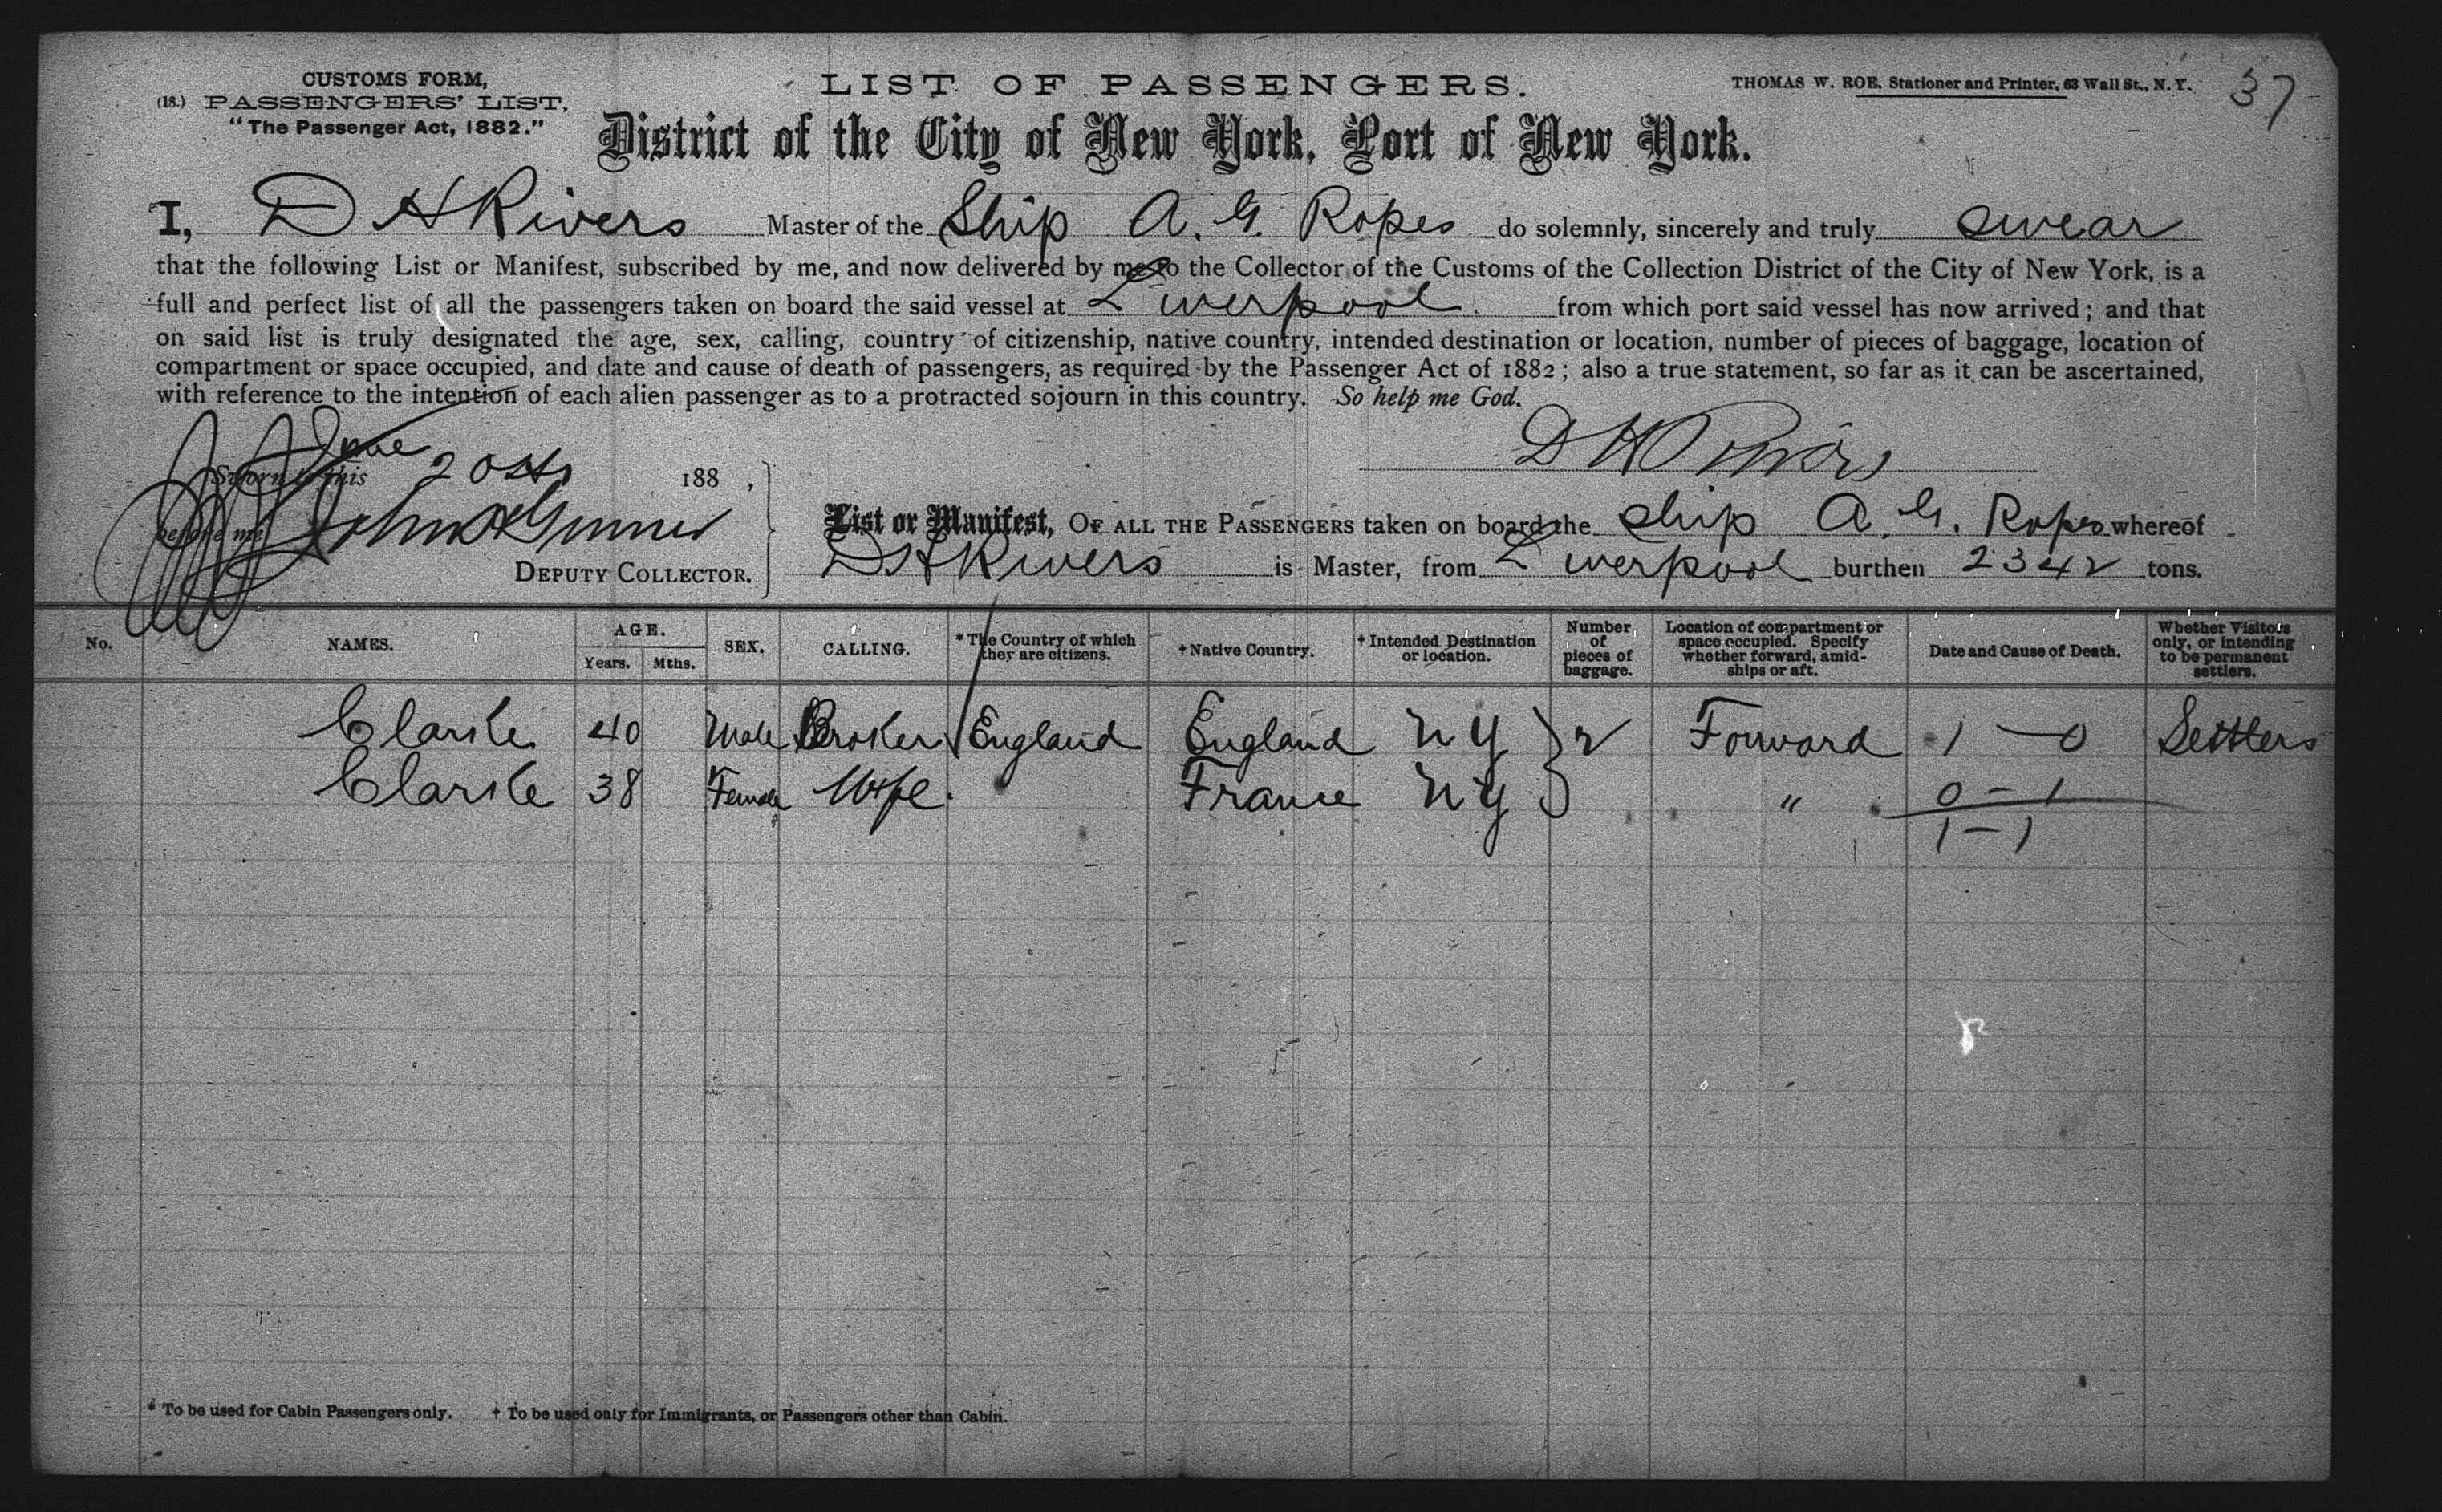 CUSTOMS FORM,
(18.) PASSENGERS' LIST,
"The Passenger Act, 1882."
LIST OF PASSENGERS.
THOMAS W. ROE, Stationer and Printer, 63 Wall St., N. Y.
37
District of the City of New York, Port of New York.
I, D H Rivers Master of the Ship A. G. Ropes do solemnly, sincerely and truly swear
that the following List or Manifest, subscribed by me, and now delivered by me to the Collector of the Customs of the Collection District of the City of New York, is a
full and perfect list of all the passengers taken on board the said vessel at Liverpool from which port said vessel has now arrived; and that
on said list is truly designated the age, sex, calling, country of citizenship, native country, intended destination or location, number of pieces of baggage, location of
compartment or space occupied, and date and cause of death of passengers, as required by the Passenger Act of 1882; also a true statement, so far as it can be ascertained,
with reference to the intention of each alien passenger as to a protracted sojourn in this country. So help me God.
D H Rivers
Sworn to this June 20th 188 ,
before me John
DEPUTY COLLECTOR.
List or Manifest, OF ALL THE PASSENGERS taken on board the ship A. G. Ropes whereof
D H Rivers is Master, from Liverpool burthen 2342 tons.
No. NAMES. AGE. Years. Mths. SEX. CALLING. * The Country of which they are citizens. † Native Country. † Intended Destination or location. Number of pieces of baggage. Location of compartment or space occupied. Specify whether forward, amidships or aft. Date and Cause of Death. Whether Visitors only, or intending to be permanent settlers.
Clarke 40 Male Broker England England N Y 2 Forward 1 - 0 Settlers
Clarke 38 Female Wife France N Y " 0 - 1
1 - 1
* To be used for Cabin Passengers only. † To be used only for Immigrants, or Passengers other than Cabin.